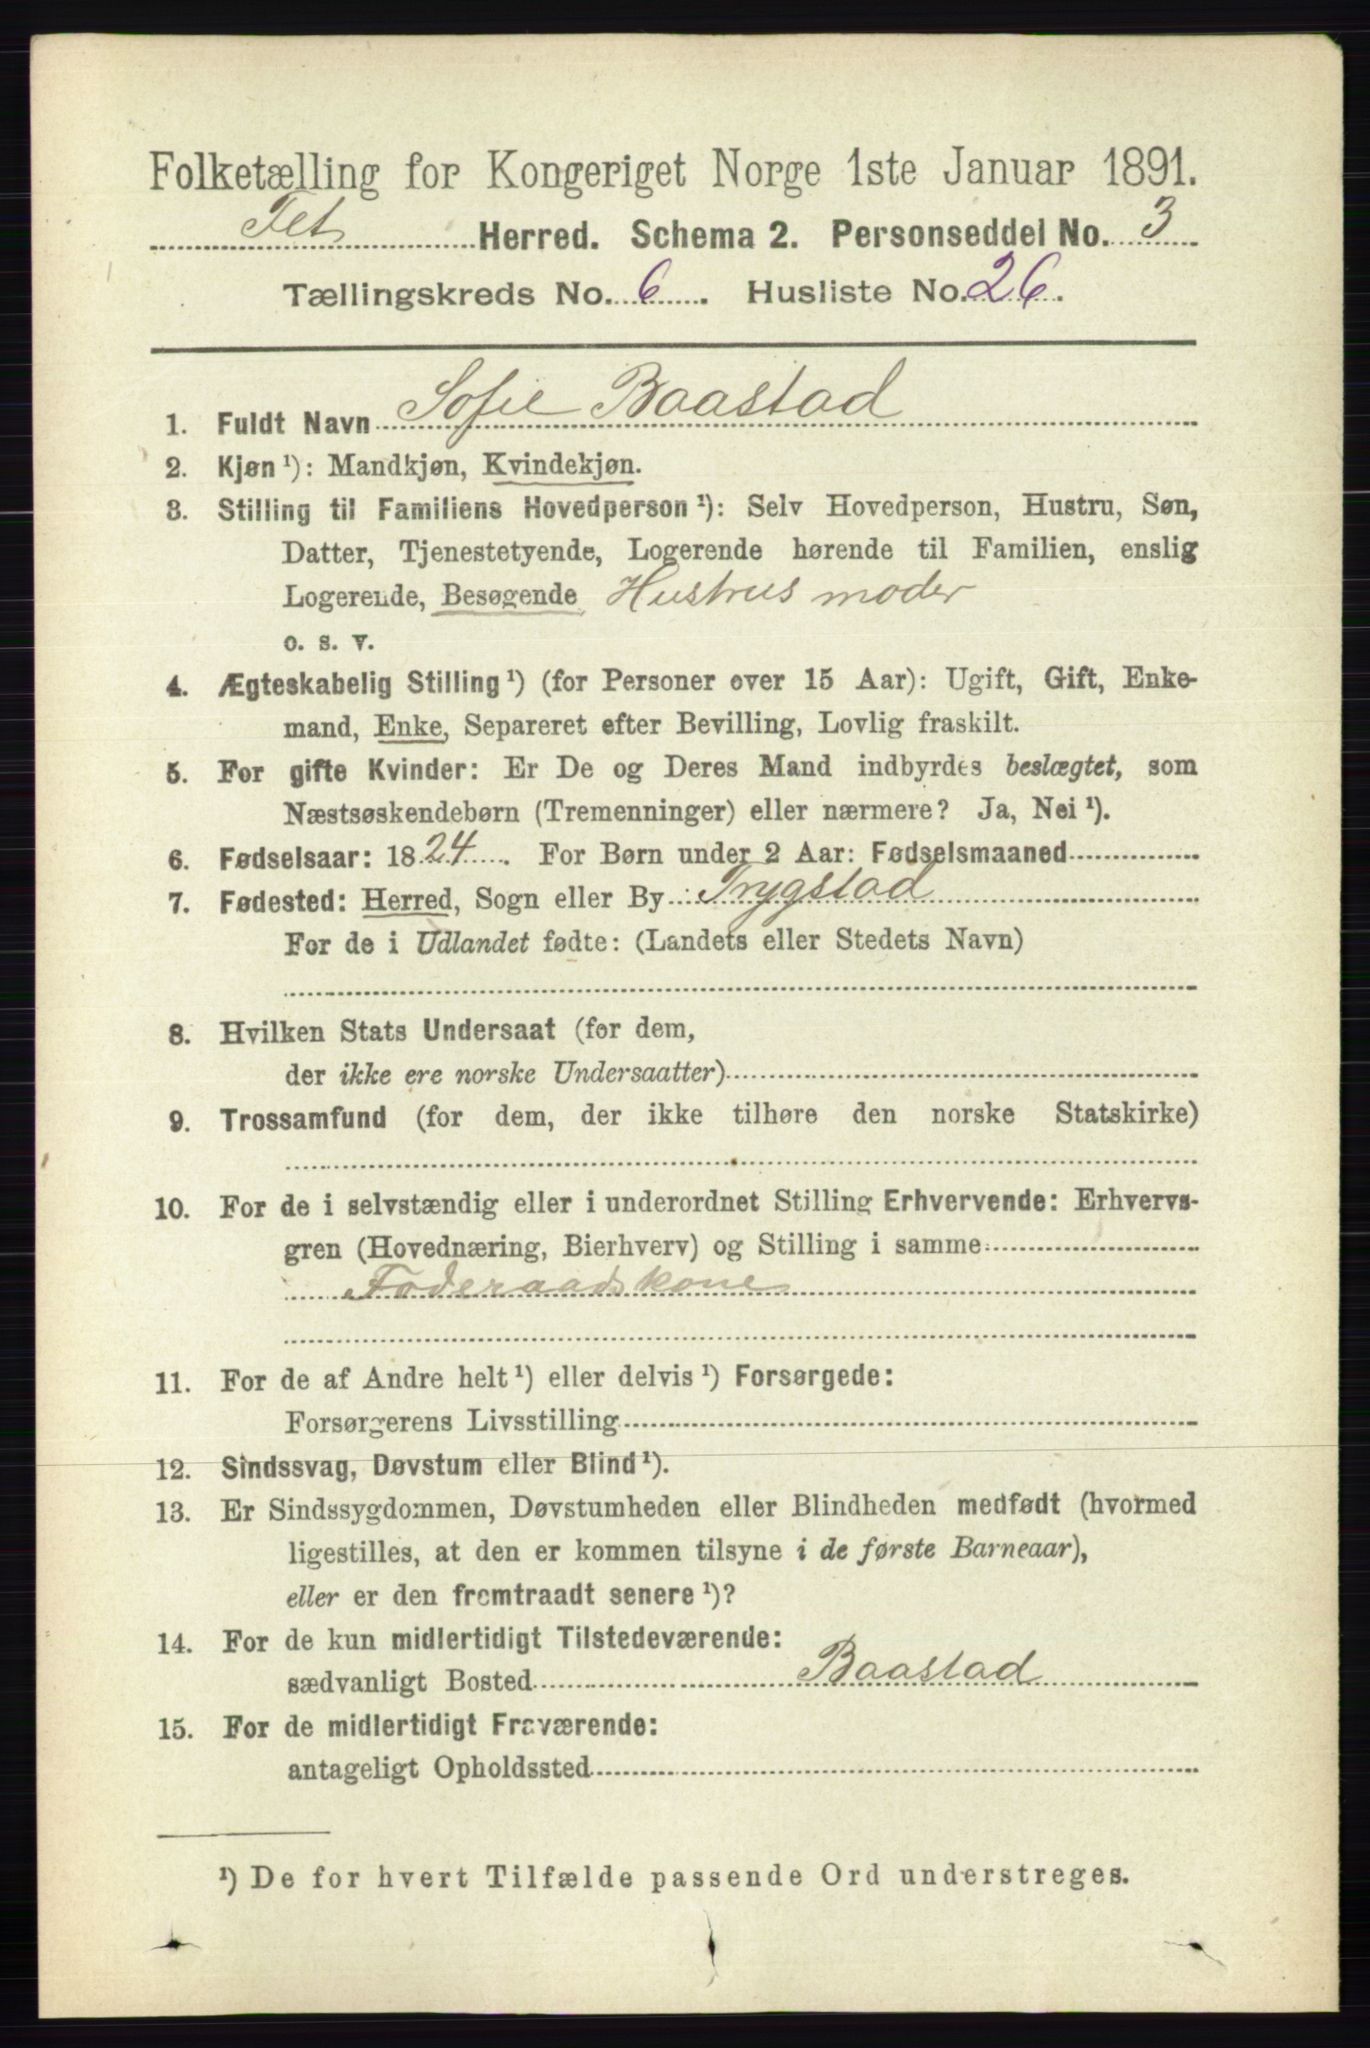 Folketælling for Kongeriget Norge 1ste Januar 1891.
Fet Herred. Schema 2. Personseddel No. 3
Tællingskreds No. 6. Husliste No. 26.
1. Fuldt Navn Sofie Baastad
2. Kjøn ¹): Mandkjøn, Kvindekjøn.
3. Stilling til Familiens Hovedperson ¹): Selv Hovedperson, Hustru, Søn,
Datter, Tjenestetyende, Logerende hørende til Familien, enslig
Logerende, Besøgende Hustrus moder
o. s. v.
4. Ægteskabelig Stilling ¹) (for Personer over 15 Aar): Ugift, Gift, Enke-
mand, Enke, Separeret efter Bevilling, Lovlig fraskilt.
5. For gifte Kvinder: Er De og Deres Mand indbyrdes beslægtet, som
Næstsøskendebørn (Tremenninger) eller nærmere? Ja, Nei ¹).
6. Fødselsaar: 1824. For Børn under 2 Aar: Fødselsmaaned
7. Fødested: Herred, Sogn eller By Trygstad
For de i Udlandet fødte: (Landets eller Stedets Navn)
8. Hvilken Stats Undersaat (for dem,
der ikke ere norske Undersaatter)
9. Trossamfund (for dem, der ikke tilhøre den norske Statskirke)
10. For de i selvstændig eller i underordnet Stilling Erhvervende: Erhvervs-
gren (Hovednæring, Bierhverv) og Stilling i samme
Føderaadskone
11. For de af Andre helt ¹) eller delvis ¹) Forsørgede:
Forsørgerens Livsstilling
12. Sindssvag, Døvstum eller Blind ¹).
13. Er Sindssygdommen, Døvstumheden eller Blindheden medfødt (hvormed
ligestilles, at den er kommen tilsyne i de første Barneaar),
eller er den fremtraadt senere ¹)?
14. For de kun midlertidigt Tilstedeværende:
sædvanligt Bosted Baastad
15. For de midlertidigt Fraværende:
antageligt Opholdssted
¹) De for hvert Tilfælde passende Ord understreges.